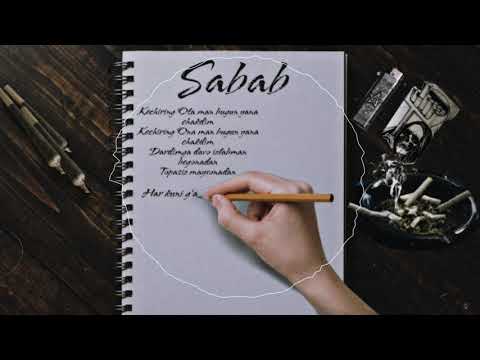 Sabab
Kechiring Ota man bugun yana
chakdim
Kechiring Ona man bugun yana
chakdim
Dardimga davo izlabman
begonadan
Topasiz mayxonadan
Har kuni g'a